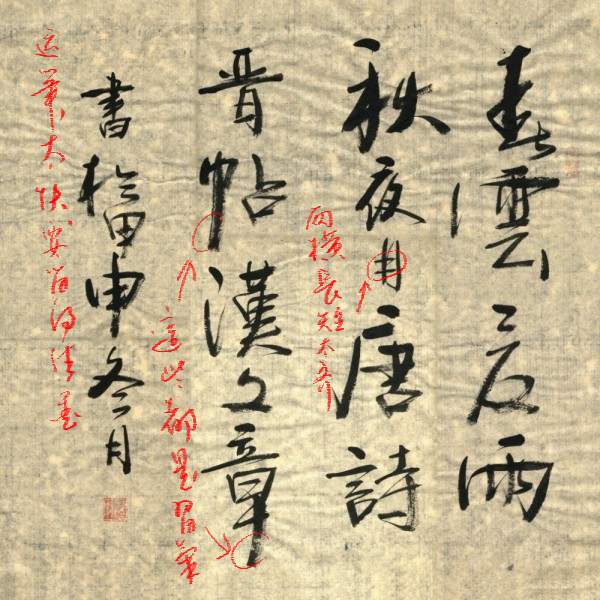 春雲夏雨
秋夜月唐詩
兩橫長短太齊
晉帖漢文章
這些都是習
書於甲申冬月
运筆太快要留得住墨